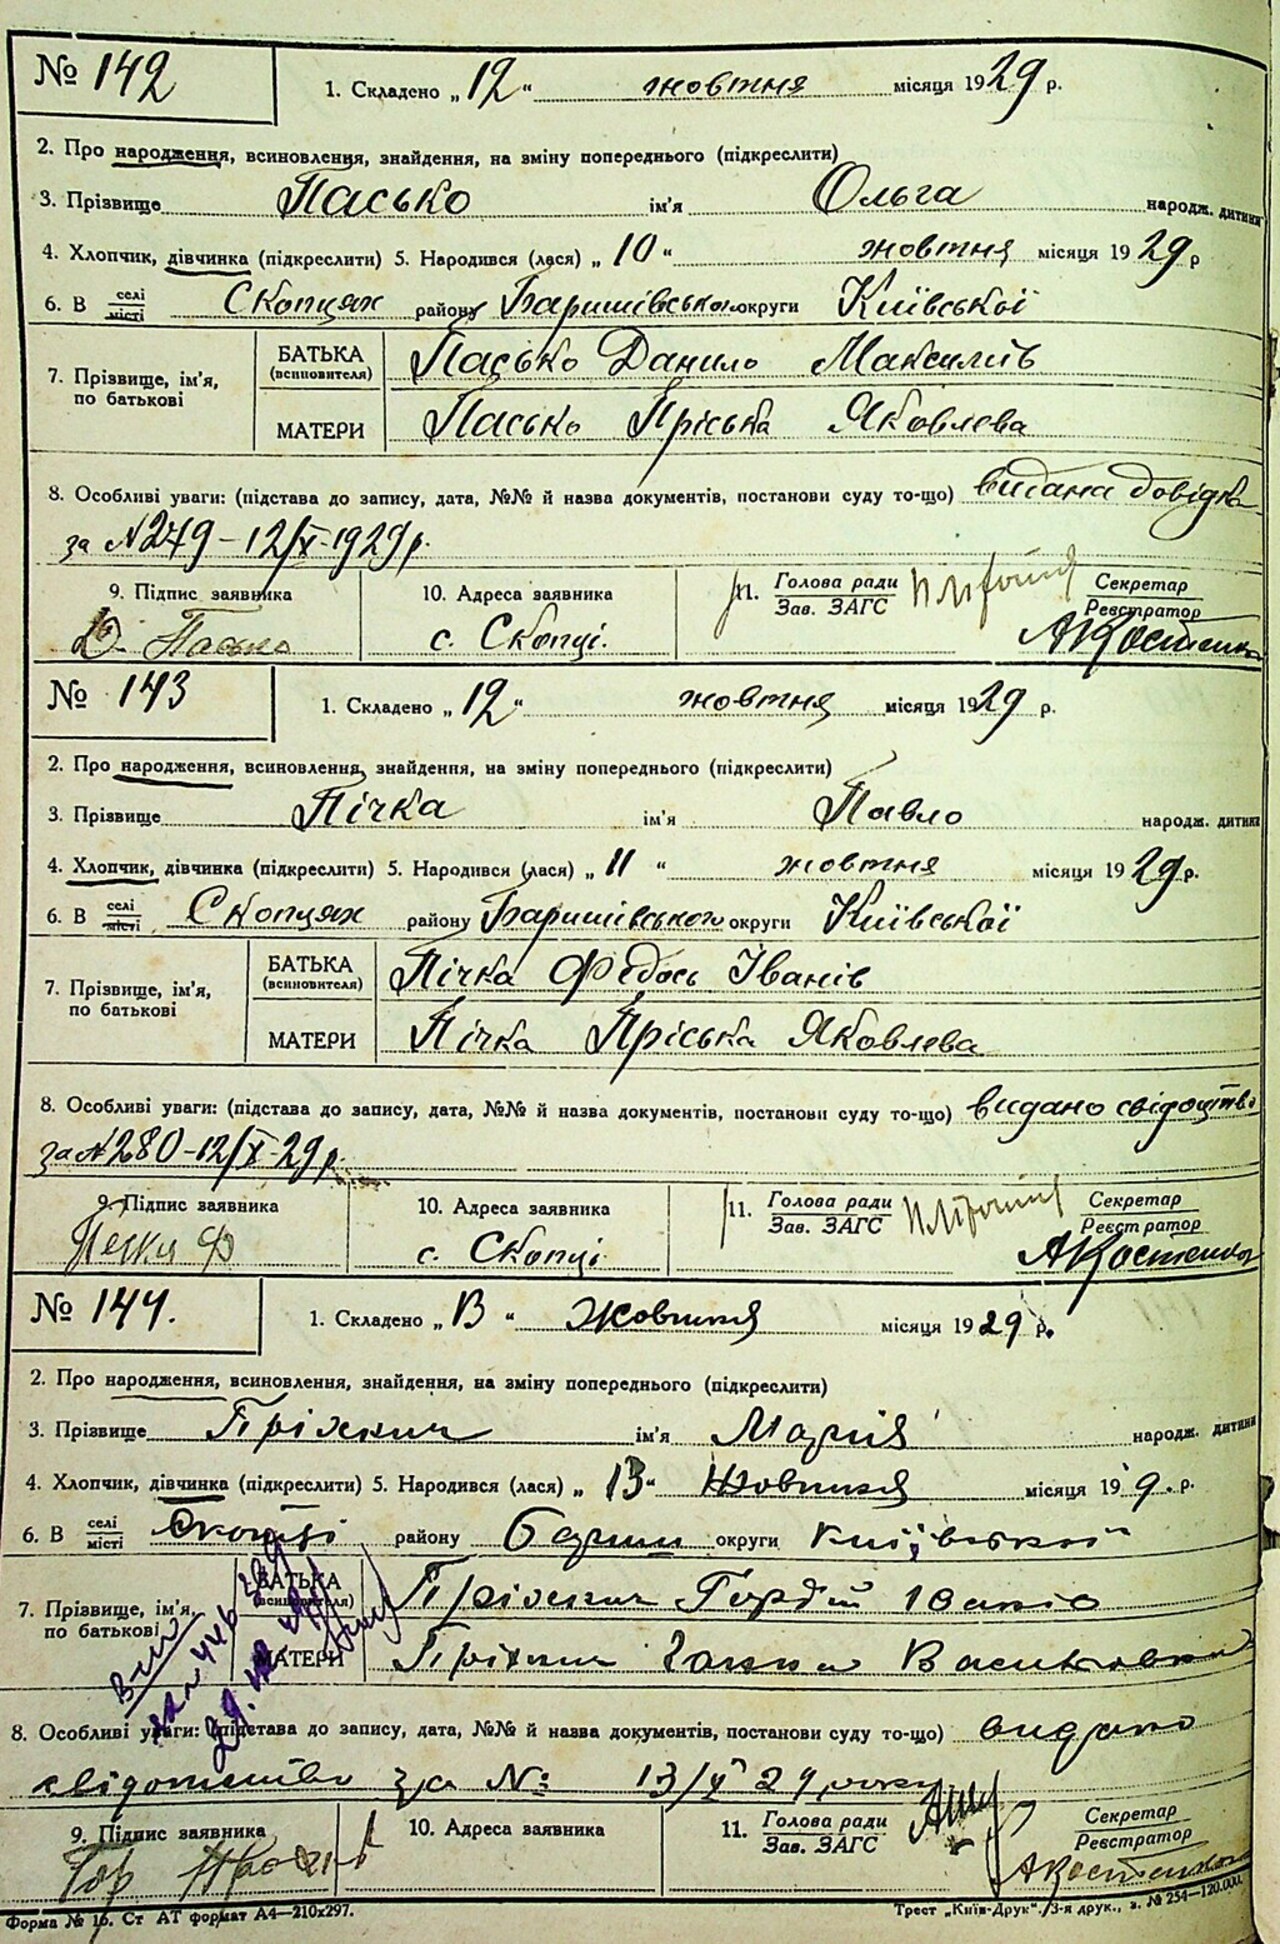 № 142
1. Складено „12“ жовтня місяця 1929 р.
2. Про народження, всиновлення, знайдення, на зміну попереднього (підкреслити)
3. Прізвище Пасько ім'я Ольга народж. дитини
4. Хлопчик, дівчинка (підкреслити) 5. Народився (лася) „10“ жовтня місяця 1929 р
6. В селі місті Скопцях району Баришівського округи Київської
7. Прізвище, ім'я, по батькові
БАТЬКА (всиновителя) Пасько Данило Максимів
МАТЕРИ Пасько Пріська Яковлева
8. Особливі уваги: (підстава до запису, дата, №№ й назва документів, постанови суду то-що) видана довідка
за №279 – 12/X-1929 р.
9. Підпис заявника 10. Адреса заявника 11. Голова ради Зав. ЗАГС Секретар Реєстратор
Д. Пасько с. Скопці. АКостенко
№ 143
1. Складено „12“ жовтня місяця 1929 р.
2. Про народження, всиновлення, знайдення, на зміну попереднього (підкреслити)
3. Прізвище Пічка ім'я Павло народж. дитини
4. Хлопчик, дівчинка (підкреслити) 5. Народився (лася) „11“ жовтня місяця 1929 р.
6. В селі місті Скопцях району Баришівського округи Київської
7. Прізвище, ім'я, по батькові
БАТЬКА (всиновителя) Пічка Федось Іванів
МАТЕРИ Пічка Пріська Яковлева
8. Особливі уваги: (підстава до запису, дата, №№ й назва документів, постанови суду то-що) видано свідоцтво
за №280-12/X-29 р.
9. Підпис заявника 10. Адреса заявника 11. Голова ради Зав. ЗАГС Секретар Реєстратор
Ф с. Скопці АКостенко
№ 144.
1. Складено „13“ Жовтня місяця 1929 р.
2. Про народження, всиновлення, знайдення, на зміну попереднього (підкреслити)
3. Прізвище ім'я Марія народж. дитини
4. Хлопчик, дівчинка (підкреслити) 5. Народився (лася) „13“ Жовтня місяця 19 9. р.
6. В селі місті Скопці району Бариш округи Київської
7. Прізвище, ім'я, по батькові
БАТЬКА (всиновителя) Гордій Іванів
МАТЕРИ Ганна Васильовна
8. Особливі уваги: (підстава до запису, дата, №№ й назва документів, постанови суду то-що) видано
свідотство за № 13/X 29 року
9. Підпис заявника 10. Адреса заявника 11. Голова ради Зав. ЗАГС Секретар Реєстратор
Гор АКостенко
Форма № 1б. Ст АТ формат А4—210x297. Трест „Київ-Друк“. 3-я друк., з. № 254—120.000.